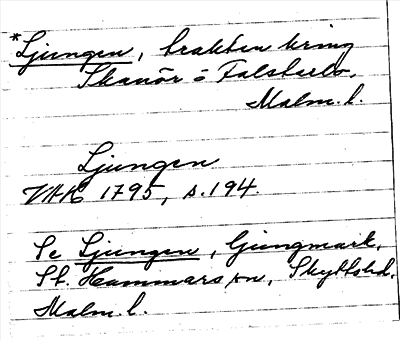 *Ljungen, trakten kring
Skanör o Falsterbo,
Malm. l.
Ljungen
VAH 1795, s. 194.
Se Ljungen, ljungmark,
St. Hammars sn, Skytts hd,
Malm. l.